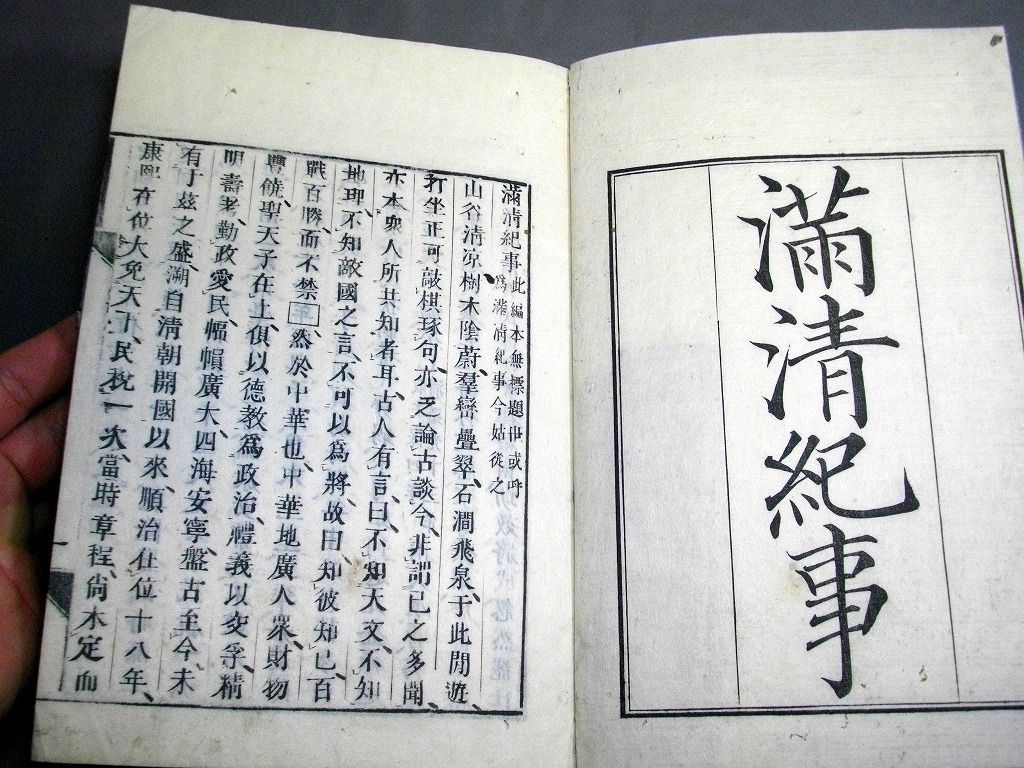 滿清紀事
滿清紀事此編本無標題世或呼
為滿清紀事今姑從之
山谷清凉樹木陰蔚羣巒疊翠石澗飛泉于此閒遊
打坐正可敲棋琢句亦乏論古談今非謂己之多聞
亦本衆人所共知者耳古人有言曰不知天文不知
地理不知敵國之言不可以爲將故曰知彼知己百
戰百勝而不禁 然於中華也中華地廣人衆財物
豐饒聖天子在上俱以德教爲政治禮義以交孚精
明壽考勤政愛民幅幀廣大四海安寧盤古至今未
有丁兹之盛溯自清朝開國以來順治在位十八年
康熙在位大免天下民稅一次當時章程尙未定而